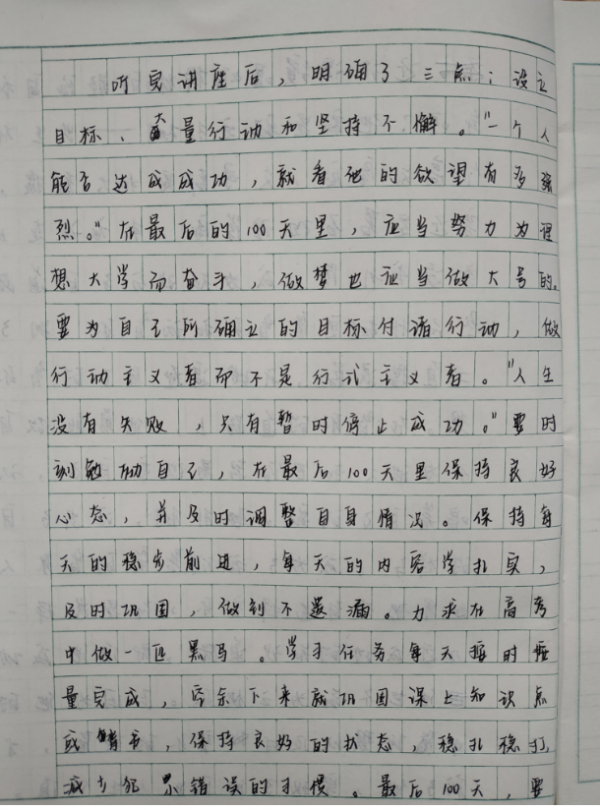 听完讲座后，明确了三点：设立
目标、大量行动和坚持不懈。“一个人
能否达成成功，就看他的欲望有多强
烈。”在最后的100天里，应当努力为理
想大学而奋斗，做梦也应当做大号的。
要为自己所确立的目标付诸行动，做
行动主义者而不是行式主义者。“人生
没有失败，只有暂时停止成功。”要时
刻勉励自己，在最后100天里保持良好
心态，并及时调整自身情况。保持每
天的稳步前进，每天的内容学扎实，
及时巩固，做到不遗漏。力求在高考
中做一匹黑马。学习任务每天按时按
量完成，空余下来就巩固课上知识点
或错书，保持良好的状态，稳扎稳打，
减少犯错误的习惯。最后100天，要